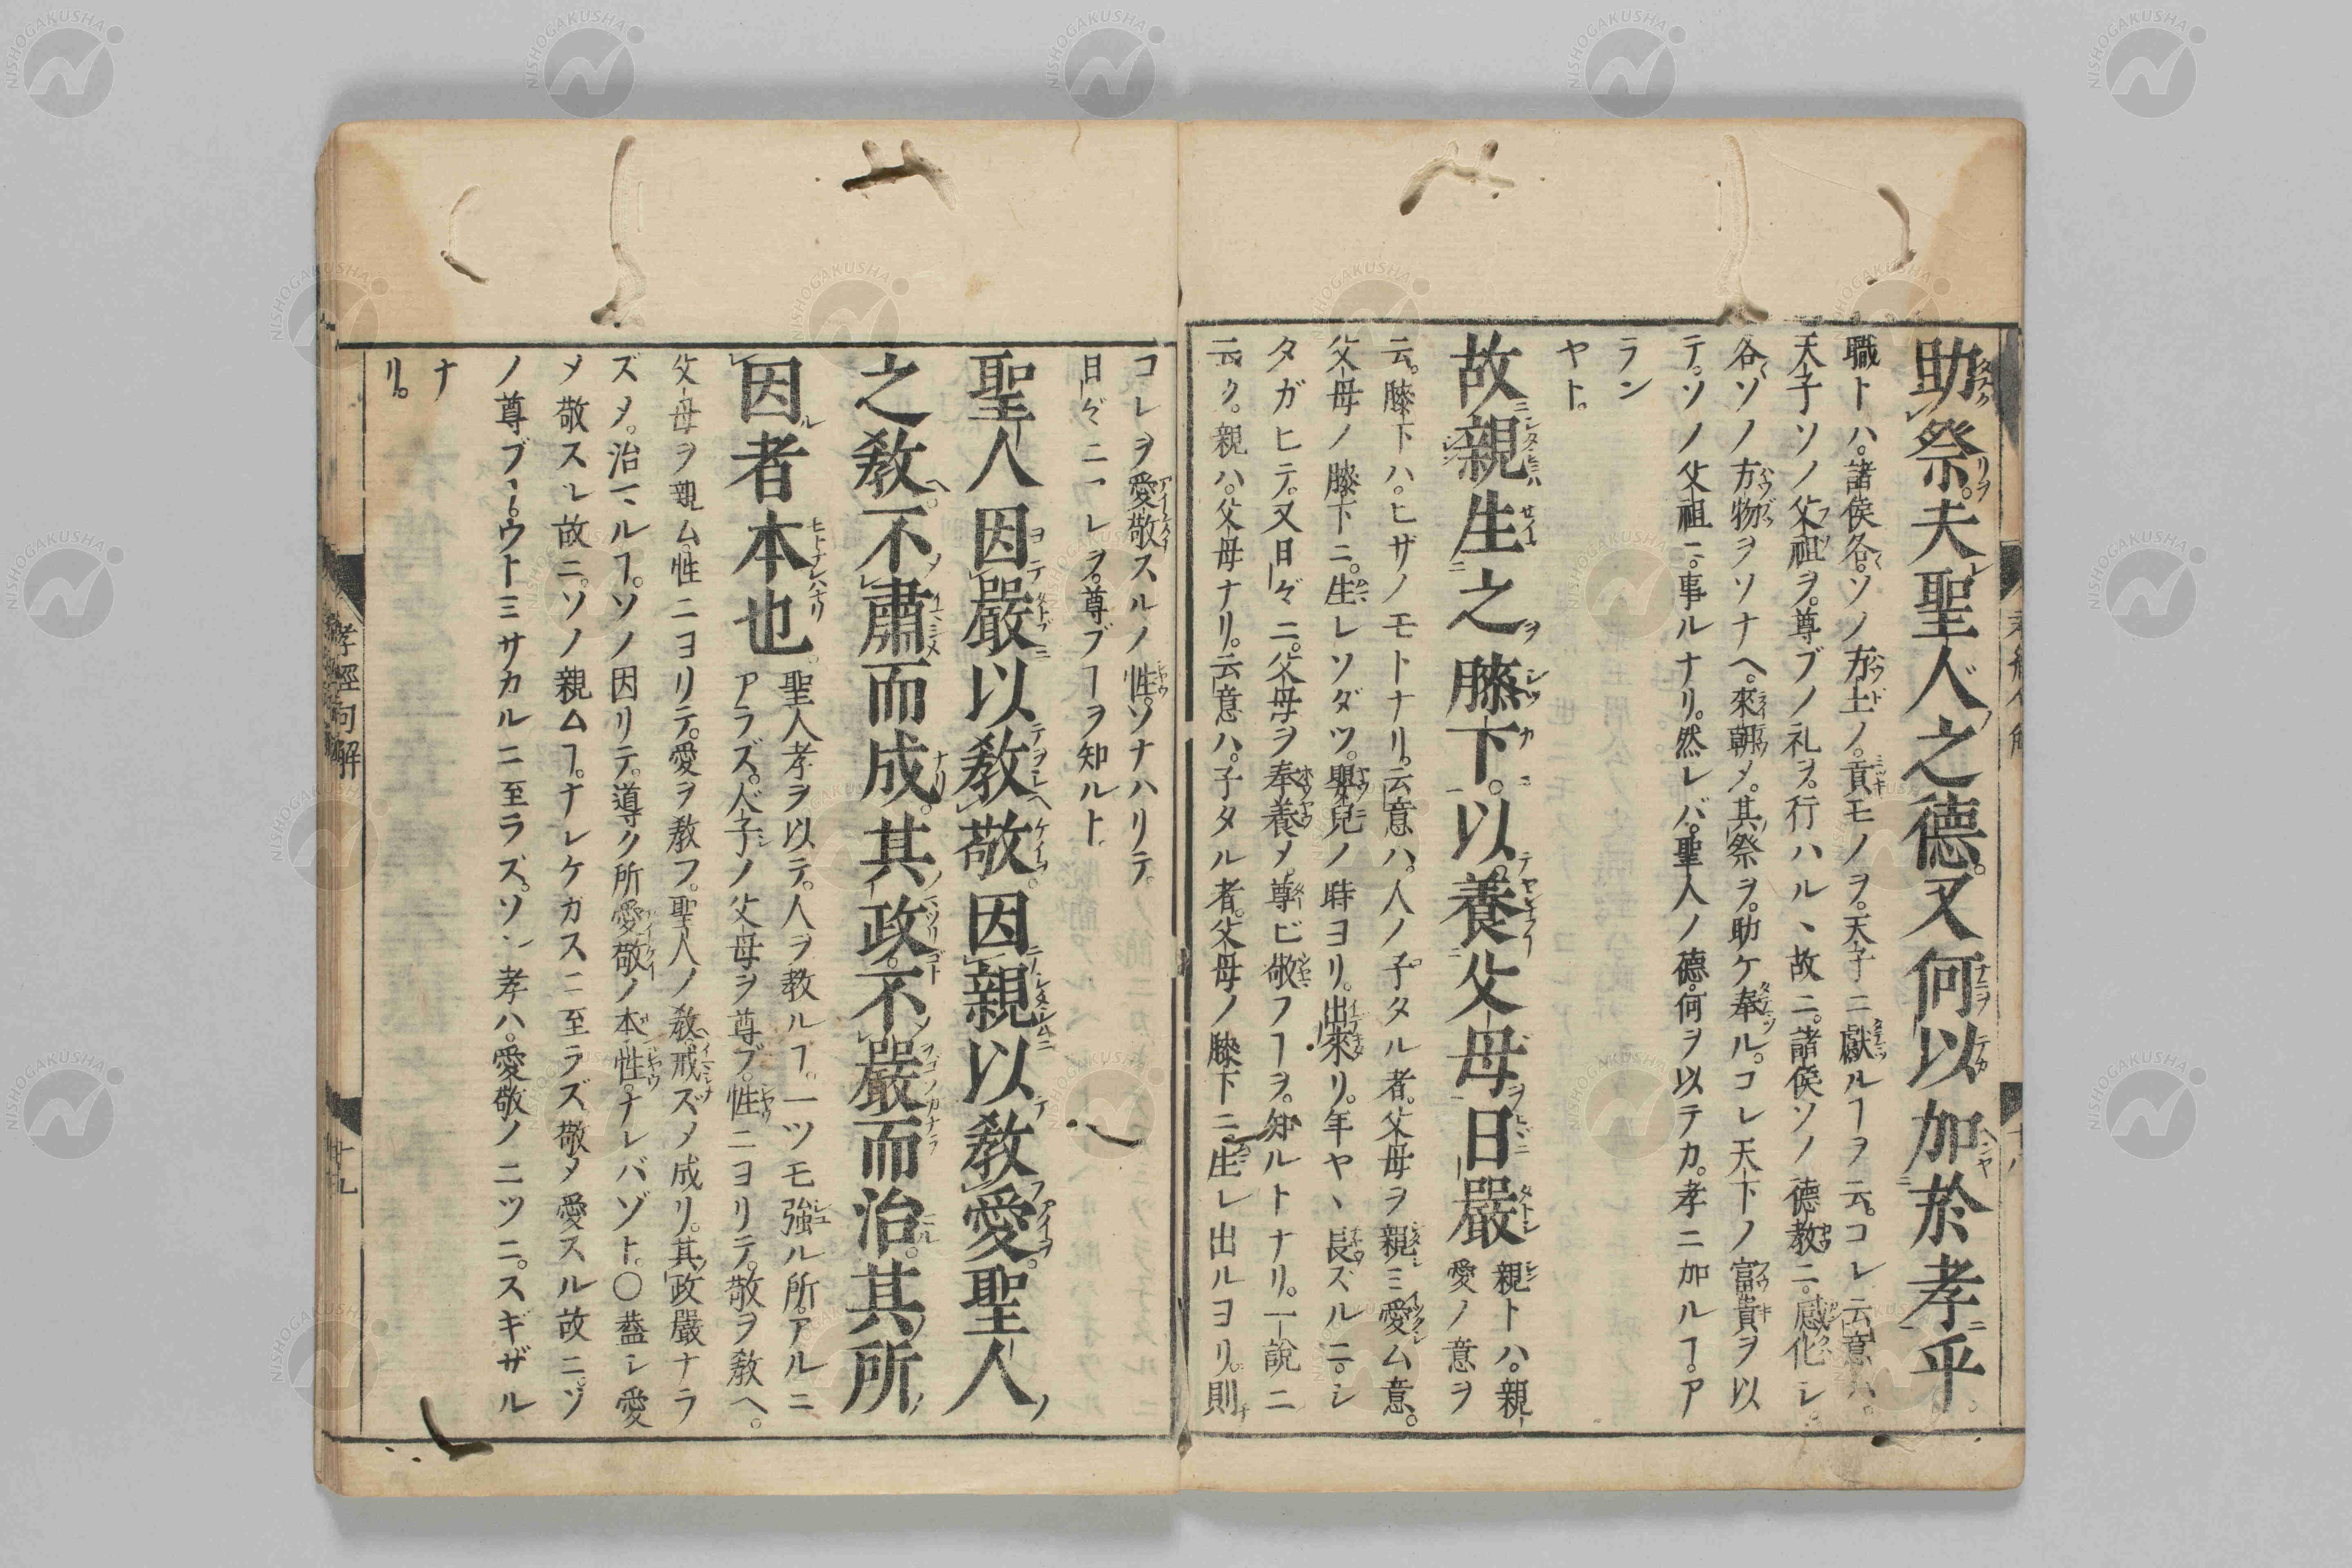 助祭。夫聖人之德。又何以加於孝乎。
職トハ。諸侯各〻。ソノ方土ノ。貢モノヲ。天子ニ獻ルヿヲ云。コレ云意ハ。
天子ソノ父祖ヲ。尊ブノ礼ヲ。行ハル丶故ニ。諸侯ソノ德教ニ。感化シ。
各〻ソノ方物ヲソナヘ。來朝メ。其祭ヲ。助ケ奉ル。コレ天下ノ富貴ヲ以
テ。ソノ父祖ニ。事ルナリ。然レバ。聖人ノ德。何ヲ以テカ。孝ニ加ルヿ。ア
ラン
ヤト。
故親生之膝下。以養父母日嚴
親トハ。親
愛ノ意ヲ
云。膝下ハ。ヒザノモトナリ。云意ハ。人ノ子タル者。父母ヲ親ミ愛ム意。
父母ノ膝下ニ。生レソダツ。嬰兒ノ時ヨリ。出來リ。年ヤ丶長ズルニ。シ
タガヒテ。又日〻ニ。父母ヲ奉養メ。尊ビ敬フヿヲ。知ルトナリ。一說ニ
云ク。親ハ。父母ナリ。云意ハ。子タル者。父母ノ膝下ニ生レ出ルヨリ。則
コレヲ愛敬スルノ性。ソナハリテ。
日〻ニコレヲ。尊ブヿヲ知ルト
聖人因嚴以教敬。因親以教愛。聖人
之教。不肅而成。其政。不嚴而治。其所
因者本也。
聖人孝ヲ以テ。人ヲ教ルヿ。一ツモ強ル所。アルニ
アラズ。人子ノ父母ヲ尊ブ。性ニヨリテ。敬ヲ教ヘ。
父母ヲ親ム。性ニヨリテ。愛ヲ教フ。聖人ノ教。戒ズメ成リ。其政嚴ナラ
ズメ。治マルヿ。ソノ因リテ。導ク所。愛敬ノ本性。ナレバゾト。〇蓋シ愛
メ敬スレ故ニ。ソノ親ムヿ。ナレケガスニ至ラズ。敬メ愛スル故ニ。ソ
ノ尊ブヿ。ウトミサカルニ至ラズ。ソレ孝ハ。愛敬ノ二ツニ。スギザル
ナ
リ。
孝經句解
十九